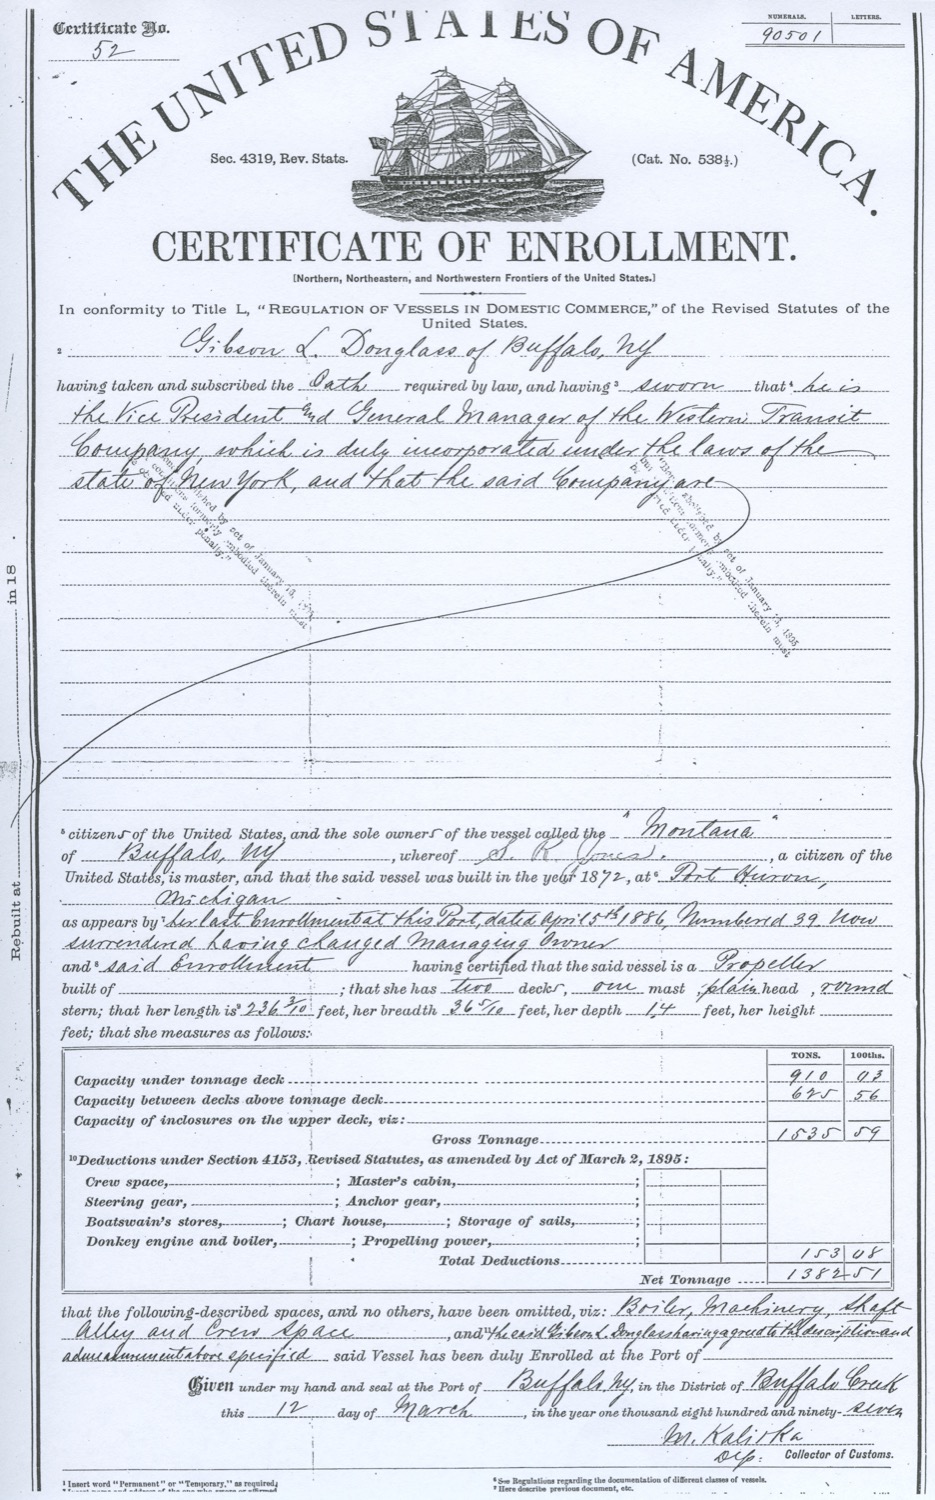 Certificate No.
52
NUMERALS. LETTERS.
90501
THE UNITED STATES OF AMERICA.
Sec. 4319, Rev. Stats.
(Cat. No. 538½.)
CERTIFICATE OF ENROLLMENT.
[Northern, Northeastern, and Northwestern Frontiers of the United States.]
In conformity to Title L, "REGULATION OF VESSELS IN DOMESTIC COMMERCE," of the Revised Statutes of the
United States.
2 Gibson L. Douglass of Buffalo, NY
having taken and subscribed the Oath required by law, and having 3 sworn that 4 he is
the Vice President and General Manager of the Western Transit
Company, which is duly incorporated under the laws of the
state of New York, and that the said Company are
Rebuilt at in 18
5 citizens of the United States, and the sole owners of the vessel called the "Montana"
of Buffalo, NY, whereof S. R. Jones, a citizen of the
United States, is master, and that the said vessel was built in the year 1872, at 6 Port Huron,
Michigan
as appears by 7 her last Enrollment at this Port, dated April 5th 1886, Numbered 39. Now
surrendered having changed Managing Owner
and 8 said Enrollment having certified that the said vessel is a Propeller
built of ; that she has two decks, one mast, plain head, round
stern; that her length is 9 236 3/10 feet, her breadth 36 5/10 feet, her depth 14 feet, her height
feet; that she measures as follows:
TONS. 100ths.
Capacity under tonnage deck 910 03
Capacity between decks above tonnage deck 625 56
Capacity of inclosures on the upper deck, viz:
Gross Tonnage 1535 59
10 Deductions under Section 4153, Revised Statutes, as amended by Act of March 2, 1895:
Crew space, ; Master's cabin, ;
Steering gear, ; Anchor gear, ;
Boatswain's stores, ; Chart house, ; Storage of sails, ;
Donkey engine and boiler, ; Propelling power, ;
Total Deductions 153 08
Net Tonnage 1382 51
that the following-described spaces, and no others, have been omitted, viz: Boiler, Machinery, Shaft
Alley and Crew Space, and 11 the said Gibson L. Douglass having agreed to the description and
admeasurement above specified said Vessel has been duly Enrolled at the Port of
Given under my hand and seal at the Port of Buffalo, NY, in the District of Buffalo Creek
this 12 day of March, in the year one thousand eight hundred and ninety-seven
Dep. Collector of Customs.
1 Insert word "Permanent" or "Temporary," as required;
6 See Regulations regarding the documentation of different classes of vessels.
7 Here describe previous document, etc.